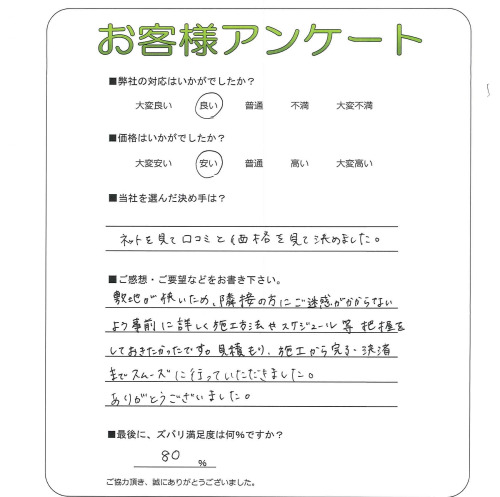 お客様アンケート
■弊社の対応はいかがでしたか?
大変良い 良い 普通 不満 大変不満
■価格はいかがでしたか?
大変安い 安い 普通 高い 大変高い
■当社を選んだ決め手は?
ネットを見て口コミと価格を見て決めました。
■ご感想・ご要望などをお書き下さい。
敷地が狭いため、隣接の方にご迷惑がかからない
よう事前に詳しく施工方法やスケジュール等把握を
しておきたかったです。見積もり、施工から完了・決済
までスムーズに行っていただきました。
ありがとうございました。
■最後に、ズバリ満足度は何%ですか?
80 %
ご協力頂き、誠にありがとうございました。